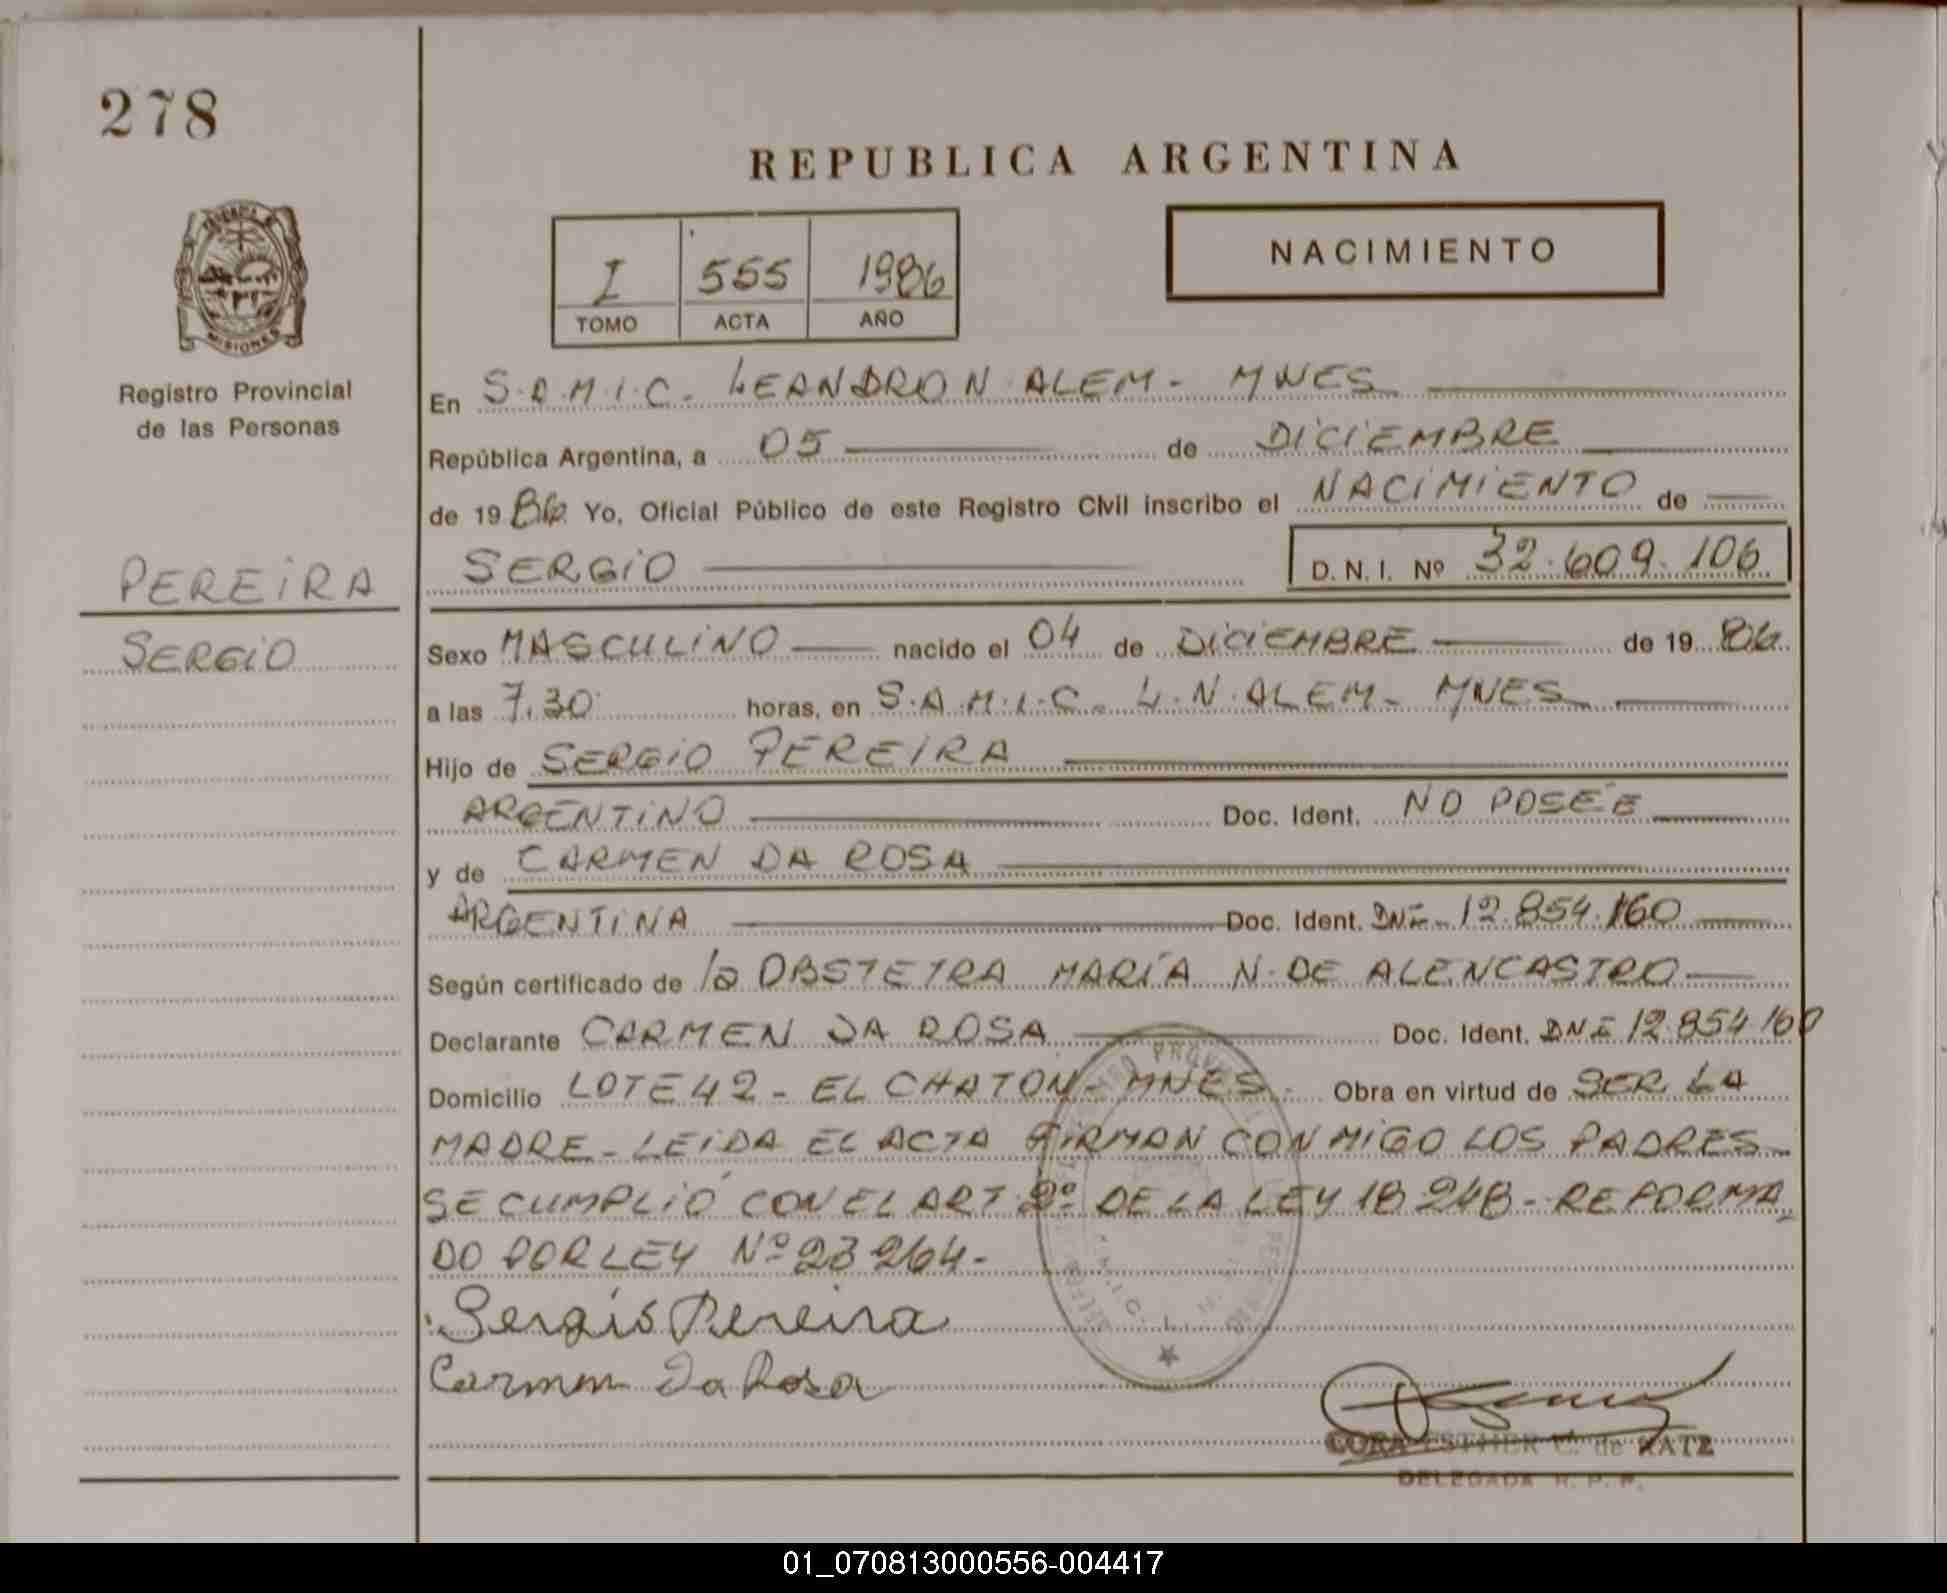 278
REPUBLICA ARGENTINA
NACIMIENTO
I 555 1986
TOMO ACTA AÑO
MISIONES
Registro Provincial
de las Personas
En S.A.M.I.C. LEANDRO N. ALEM - MNES
República Argentina, a 05 de DICIEMBRE
de 1986 Yo, Oficial Público de este Registro Civil inscribo el NACIMIENTO de
SERGIO D.N.I. Nº 32.609.106
PEREIRA
SERGIO
Sexo MASCULINO nacido el 04 de DICIEMBRE de 1986
a las 7.30 horas, en S.A.M.I.C. L.N. ALEM - MNES
Hijo de SERGIO PEREIRA
ARGENTINO Doc. Ident. NO POSEE
y de CARMEN DA ROSA
ARGENTINA Doc. Ident. DNI - 12.854.160
Según certificado de la OBSTETRA MARÍA N. DE ALENCASTRO
Declarante CARMEN DA ROSA Doc. Ident. DNI 12.854.160
Domicilio LOTE 42 - EL CHATON - MNES. Obra en virtud de SER LA
MADRE - LEIDA EL ACTA FIRMAN CONMIGO LOS PADRES -
SE CUMPLIÓ CON EL ART. 2º DE LA LEY 18.248 - REFORMA
DO POR LEY Nº 23264 -
Sergio Pereira
Carmen Da Rosa
ESTHER C. de KATZ
DELEGADA R. P. P.
01_070813000556-004417